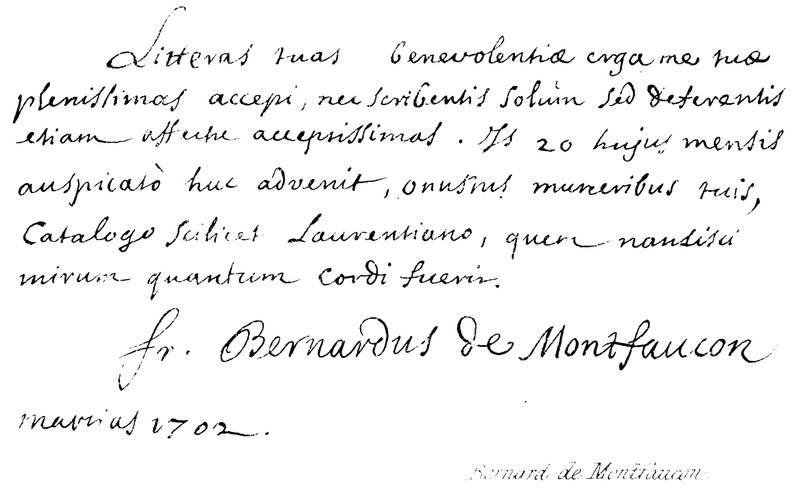 Litteras tuas benevolentiæ erga me tuæ
plenissimas accepi, nec scribentis solùm sed deferentis
etiam affectu acceptissimas. Is 20 hujus mensis
auspicatò huc advenit, onustus muneribus tuis,
Catalogo scilicet Laurentiano, quem nancisci
mirum quantum cordi fuerit.
fr. Bernardus de Montfaucon
martias 1702.
Bernard de Montfaucon.